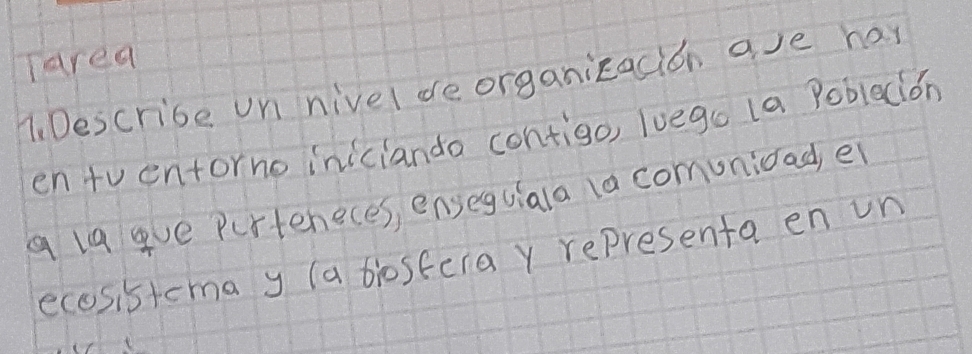 Tarea
1. Describe un nivel de organización que hay
en tu entorno iniciando contigo, luego la Población
a la que Perteneces, enseguiala la comunidad, el
ecosistema y la biosfera y rePresenta en un